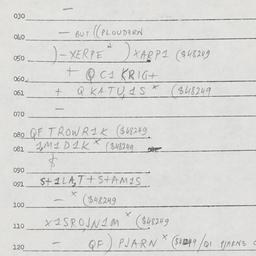 030 —
040 — BUT ((PLOUDERN
050 )-XERPE² ) XAPP1 ($48249
060 + QC1 KRIG+
061 + QKATU,1S × ($48249
070 —
080 QF TROWR1K ($48249
081 1M1D1K × ($48249
$
090
091 S+1LA,T+S+AM1S
100 — × ($48249
110 X1SROJN1M × ($48249
120 — QF) PJARN ×